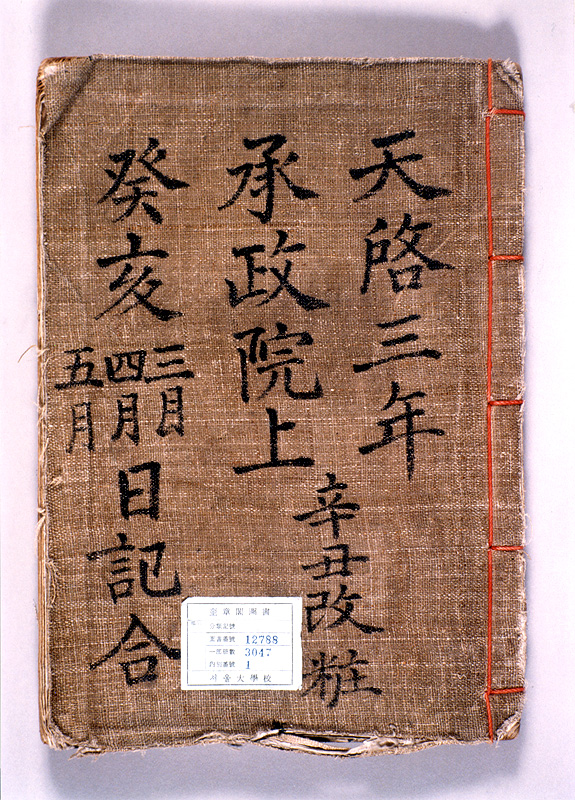 天啓三年
辛丑改粧
承政院上
癸亥
三月
四月
五月
日記合
奎章閣圖書
分類記號
圖書番號 12788
一部冊數 3047
內別番號 1
서울大學校